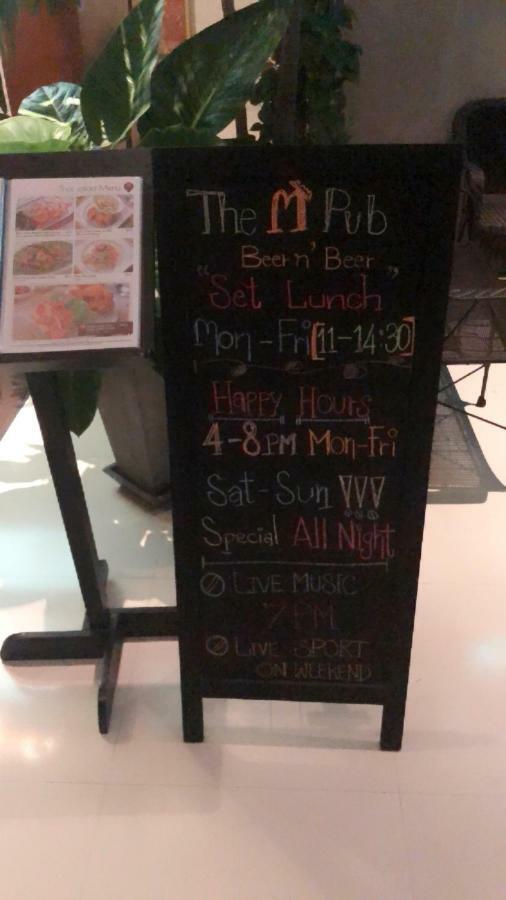 Thai salad Menu
The M Pub
Beer n' Beer
"Set Lunch"
Mon-Fri [11-14:30]
Happy Hours
4-8PM Mon-Fri
Sat-Sun !!!
Special All Night
LIVE MUSIC
7 PM
LIVE SPORT
ON WEEKEND